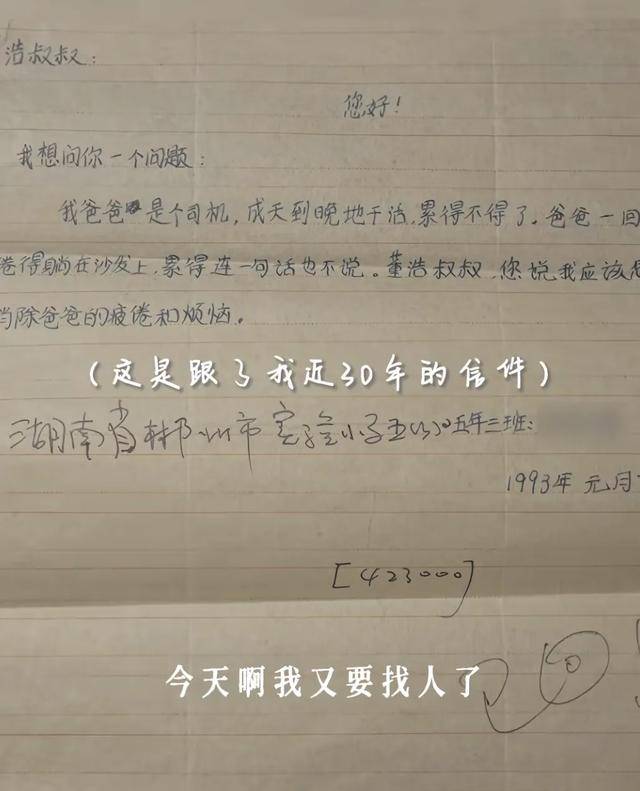 浩叔叔:
您好!
我想问你一个问题:
我爸爸是个司机,成天到晚地干活,累得不得了。爸爸一回
倦得躺在沙发上,累得连一句话也不说。董浩叔叔,您说我应该怎
当除爸爸的疲倦和烦恼。
(这是跟了我近30年的信件)
湖南省郴州市实验小学五(3) 五年三班:
1993年 元月
[423000]
今天啊我又要找人了